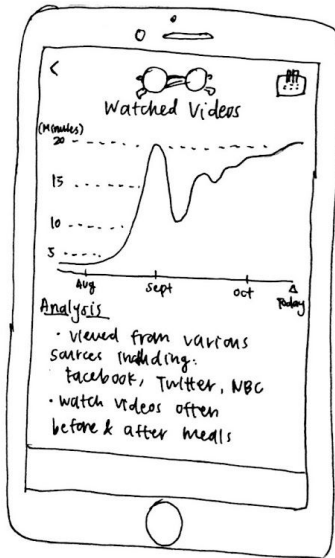 Watched Videos
(Minutes)
20
15
10
5
Aug
Sept
Oct
Today
Analysis
• viewed from various
sources including:
facebook, Twitter, NBC
• watch videos often
before & after meals